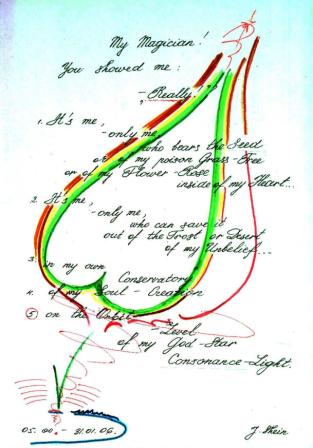 My Magician!
You showed me:
- "Really!"
1. It's me,
- only me,
who bears the Seed
or of my poison Grass-Tree
or of my Flower-Rose
inside of my Heart...
2. It's me,
- only me,
who can save it
out of the Frost or Desert
of my Unbelief...
3. in my own
Conservatory
4. of my Soul - Creation
5 on the Orbit
- Level
of my God-Star
Consonance-Light.
05. 00. - 31.01.06.